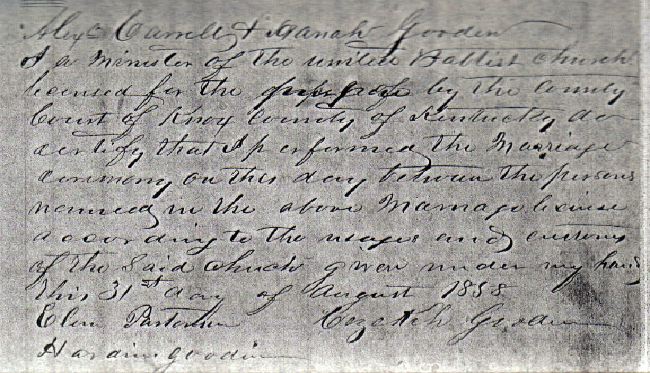 Alex Carrell & Sarah Gooden
I a Minister of the united Baptist church
licensed for the purpose by the County
Court of Knox County of Kentucky do
certify that I performed the Marriage
ceremony on this day between the persons
named in the above Marriage license
according to the usages and customs
of the said church given under my hand
this 31st day of August 1858
Gooden
Hardin gooden